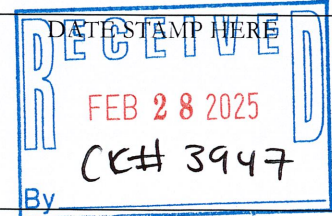 DATE STAMP HERE
RECEIVED
FEB 28 2025
CK# 3947
By